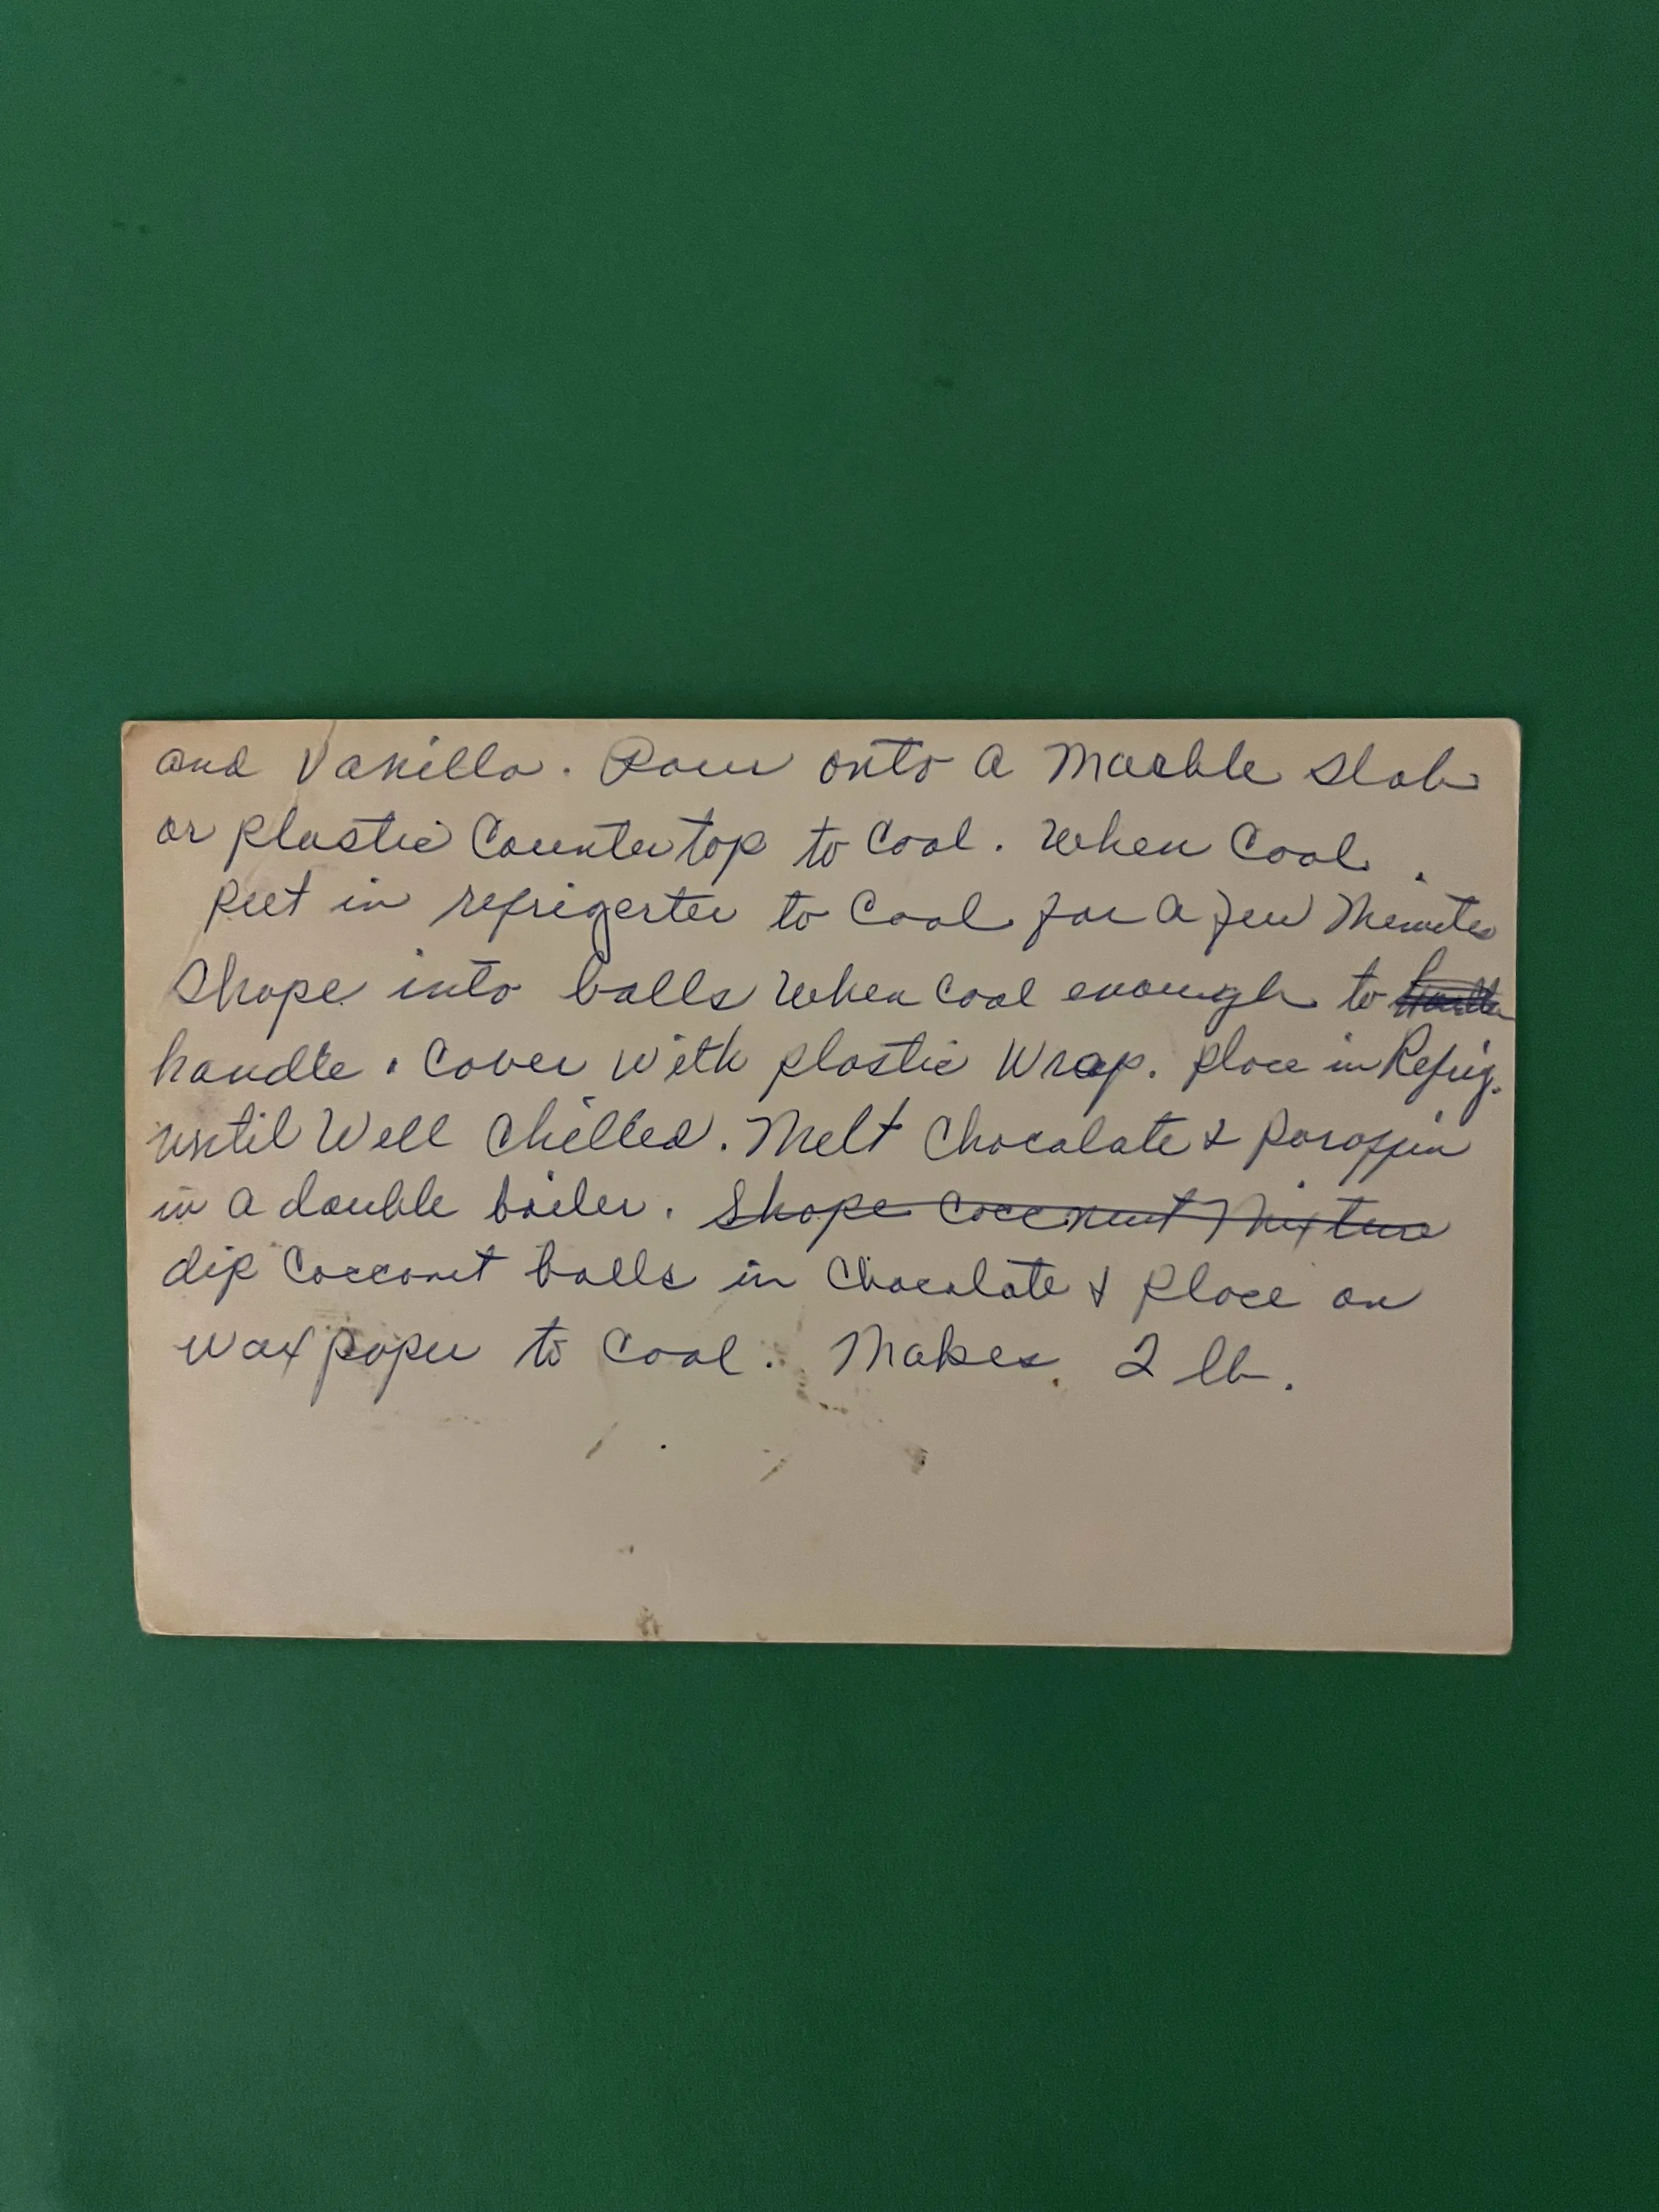 and Vanilla. Pour onto a Marble slab
or plastic Countertop to Cool. When Cool
put in refrigerter to Cool for a few Minutes
Shape into balls when cool enough to
handle. Cover with plastic Wrap. place in Refrig.
until Well Chilled. Melt Chocolate & paraffin
in a double boiler. Shape Coconut Mixture
dip Cocconut balls in Chocolate & place on
wax paper to Cool. Makes 2 lb.